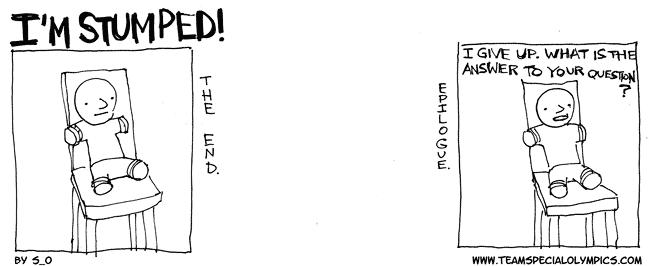 I'M STUMPED!
THE END.
BY S_O
EPILOGUE.
I GIVE UP. WHAT IS THE
ANSWER TO YOUR QUESTION
?
WWW.TEAMSPECIALOLYMPICS.COM